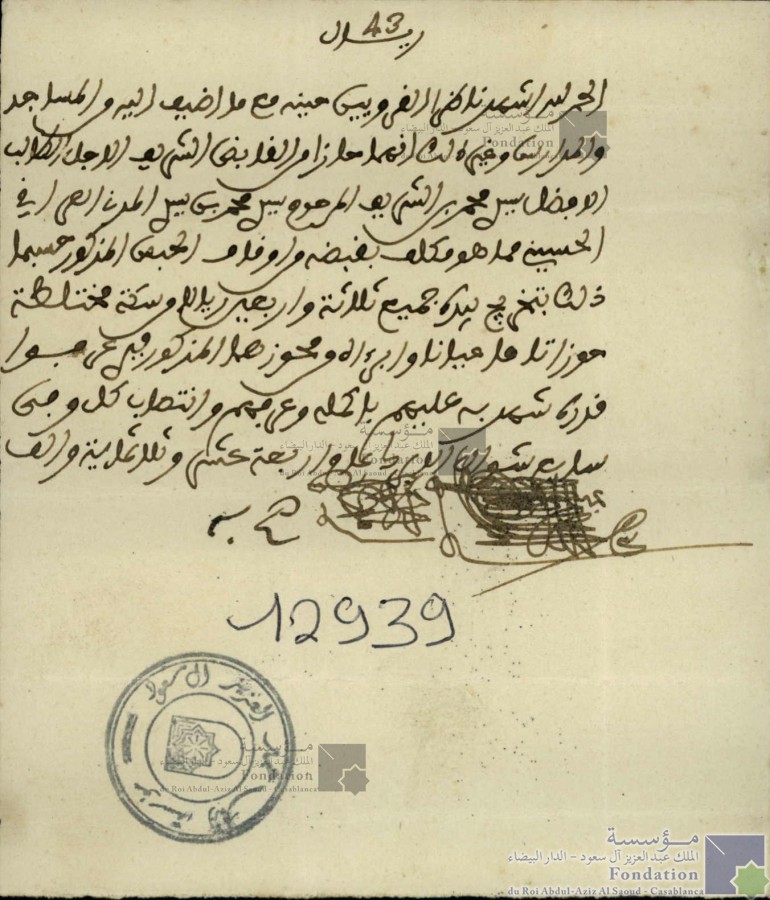 43
ريال
الحمد لله اشهد ناظر القرويين حينه مع ما اضيف اليه والمساجد
والمدارس وغير ذلك انهما حازا من القابض الشريف الاجل الطالب
الافضل سيدي محمد بن الشريف المرحوم سيدي محمد بن سيدي المدني العراقي
الحسيني مما هو مكلف بقبضه من اوقاف الحبس المذكور حسبما
ذلك بتخريج بيده جميع ثلاثة واربعين ريالا سكة مختلطة
حوزا تاما عيانا وابرءاه ومحوزهما المذكور فيه عرفوا
قدره شهد به عليهم باكمله وعرفهم وانتصاب كل وفي
سابع شوال الابرك عام اربعة عشر وثلاثماية والف
12939
مؤسسة
الملك عبد العزيز آل سعود - الدار البيضاء
Fondation
du Roi Abdul-Aziz Al Saoud - Casablanca